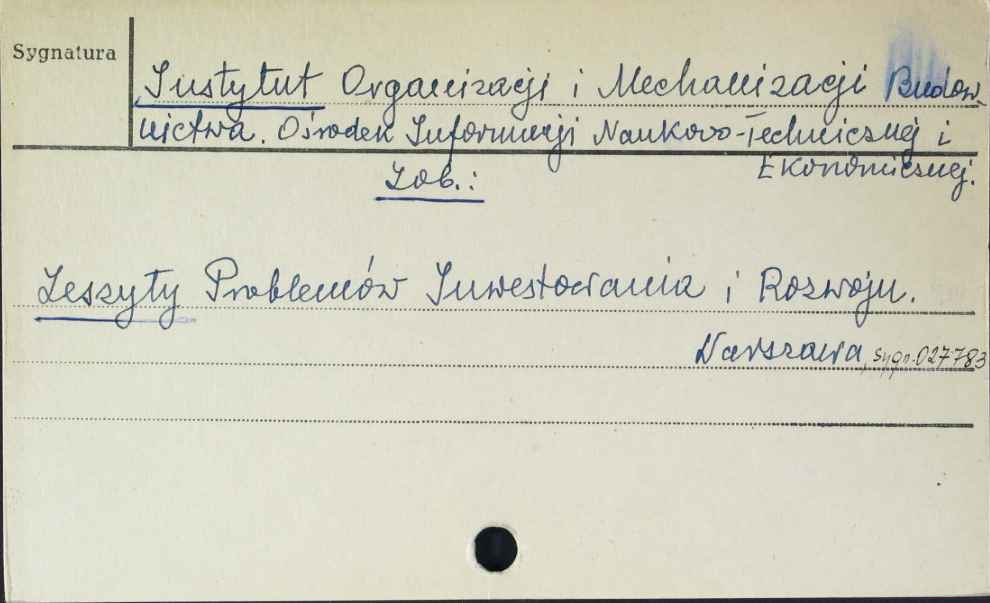 Sygnatura
Instytut Organizacji i Mechanizacji Budow-
nictwa. Ośrodek Informacji Naukowo-Technicznej i
Ekonomicznej.
Zob.:
Zeszyty Problemów Inwestowania i Rozwoju.
Warszawa, sygn. 027783